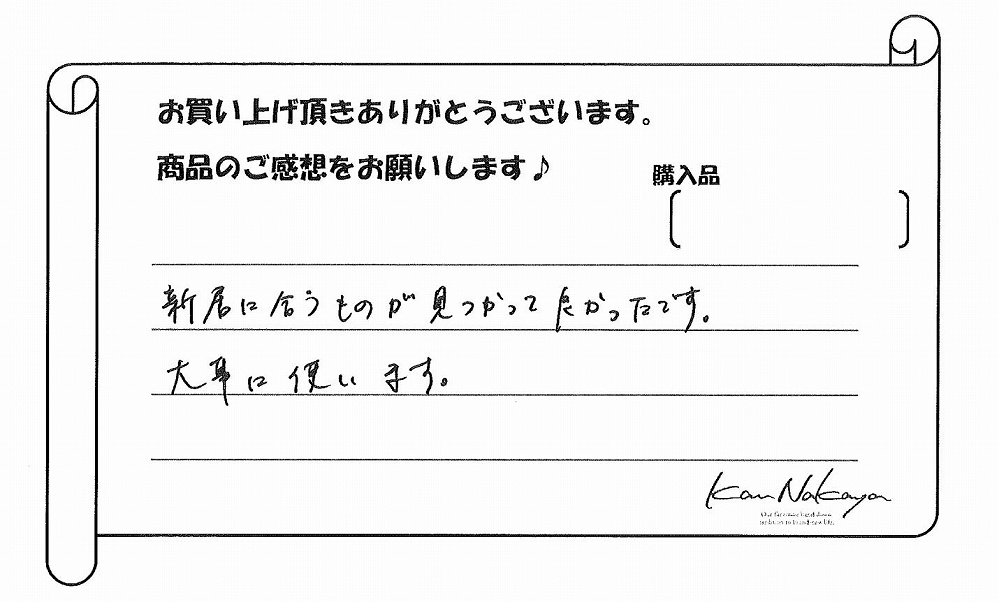 お買い上げ頂きありがとうございます。
商品のご感想をお願いします♪
購入品
新居に合うものが見つかって良かったです。
大事に使います。
Kan Nakaya